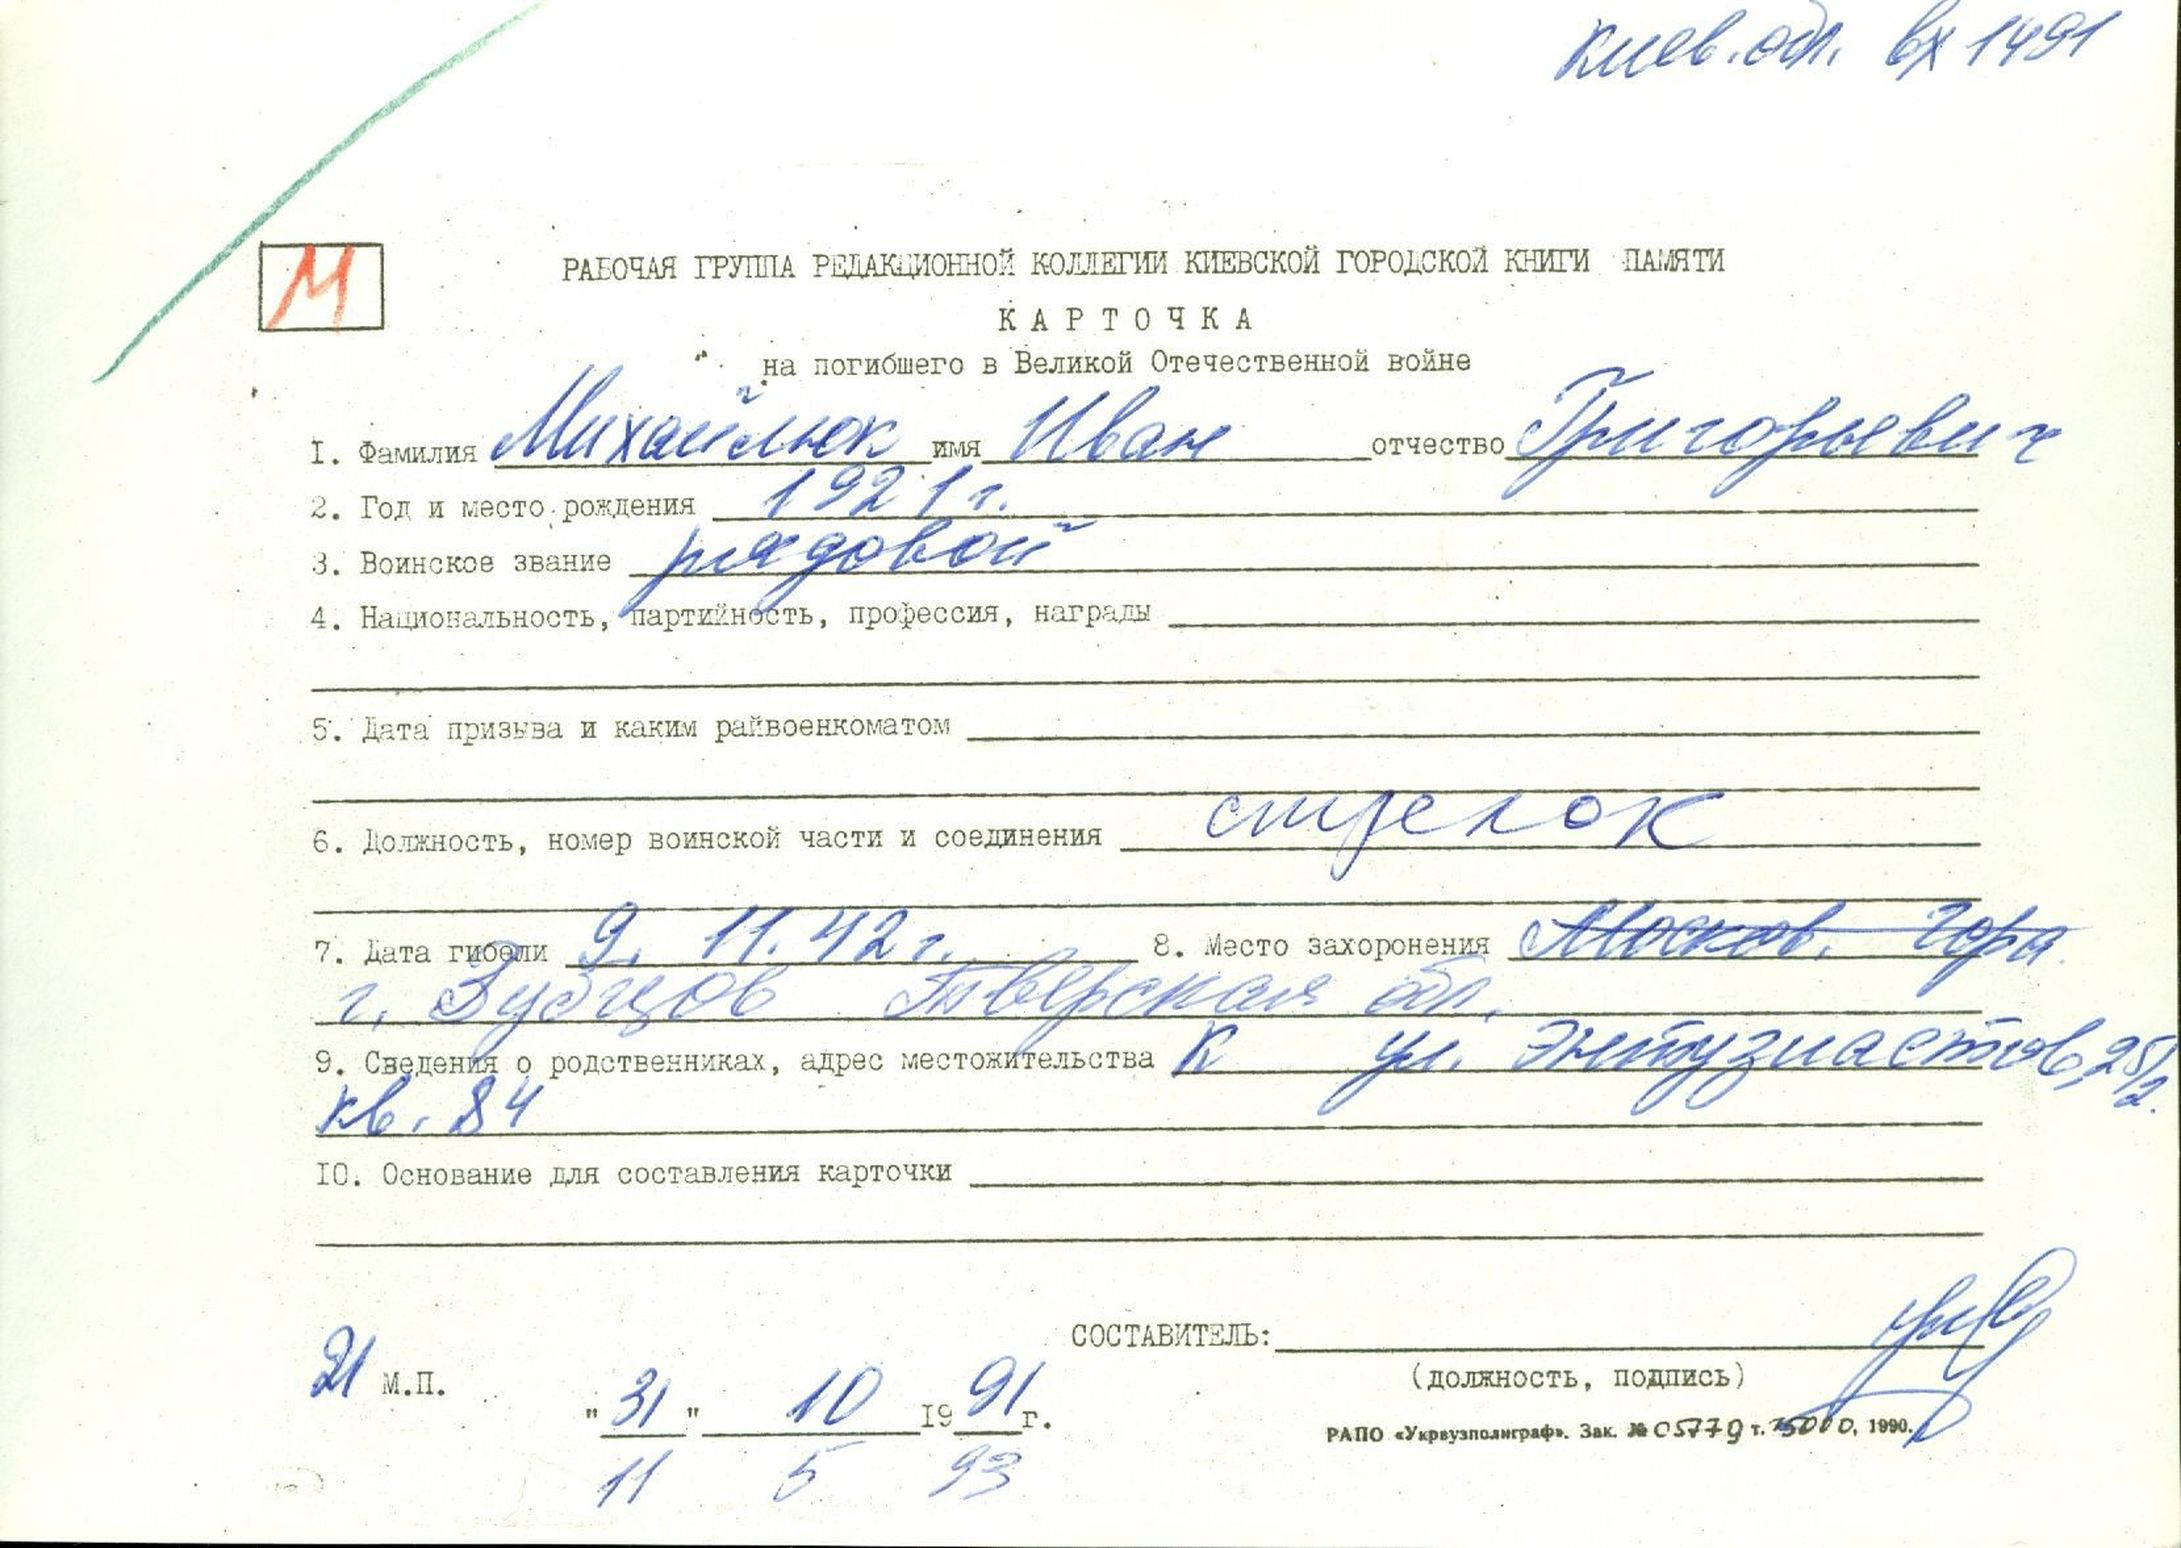 Киев. обл. вх 1491
М
РАБОЧАЯ ГРУППА РЕДАКЦИОННОЙ КОЛЛЕГИИ КИЕВСКОЙ ГОРОДСКОЙ КНИГИ ПАМЯТИ
КАРТОЧКА
на погибшего в Великой Отечественной войне
1. Фамилия Михайлюк имя Иван отчество Григорьевич
2. Год и место рождения 1921 г.
3. Воинское звание рядовой
4. Национальность, партийность, профессия, награды
5. Дата призыва и каким райвоенкоматом
6. Должность, номер воинской части и соединения стрелок
7. Дата гибели 9. 11. 42 г. 8. Место захоронения Москов. Гора
г. Зубцов Тверская обл.
9. Сведения о родственниках, адрес местожительства К ул. Энтузиастов, 25/2.
кв. 84
10. Основание для составления карточки
СОСТАВИТЕЛЬ:
(должность, подпись)
21 М.П.
"31" 10 1991 г.
РАПО «Укрвузполиграф». Зак. № 05779 т. 75000, 1990.
11 5 93